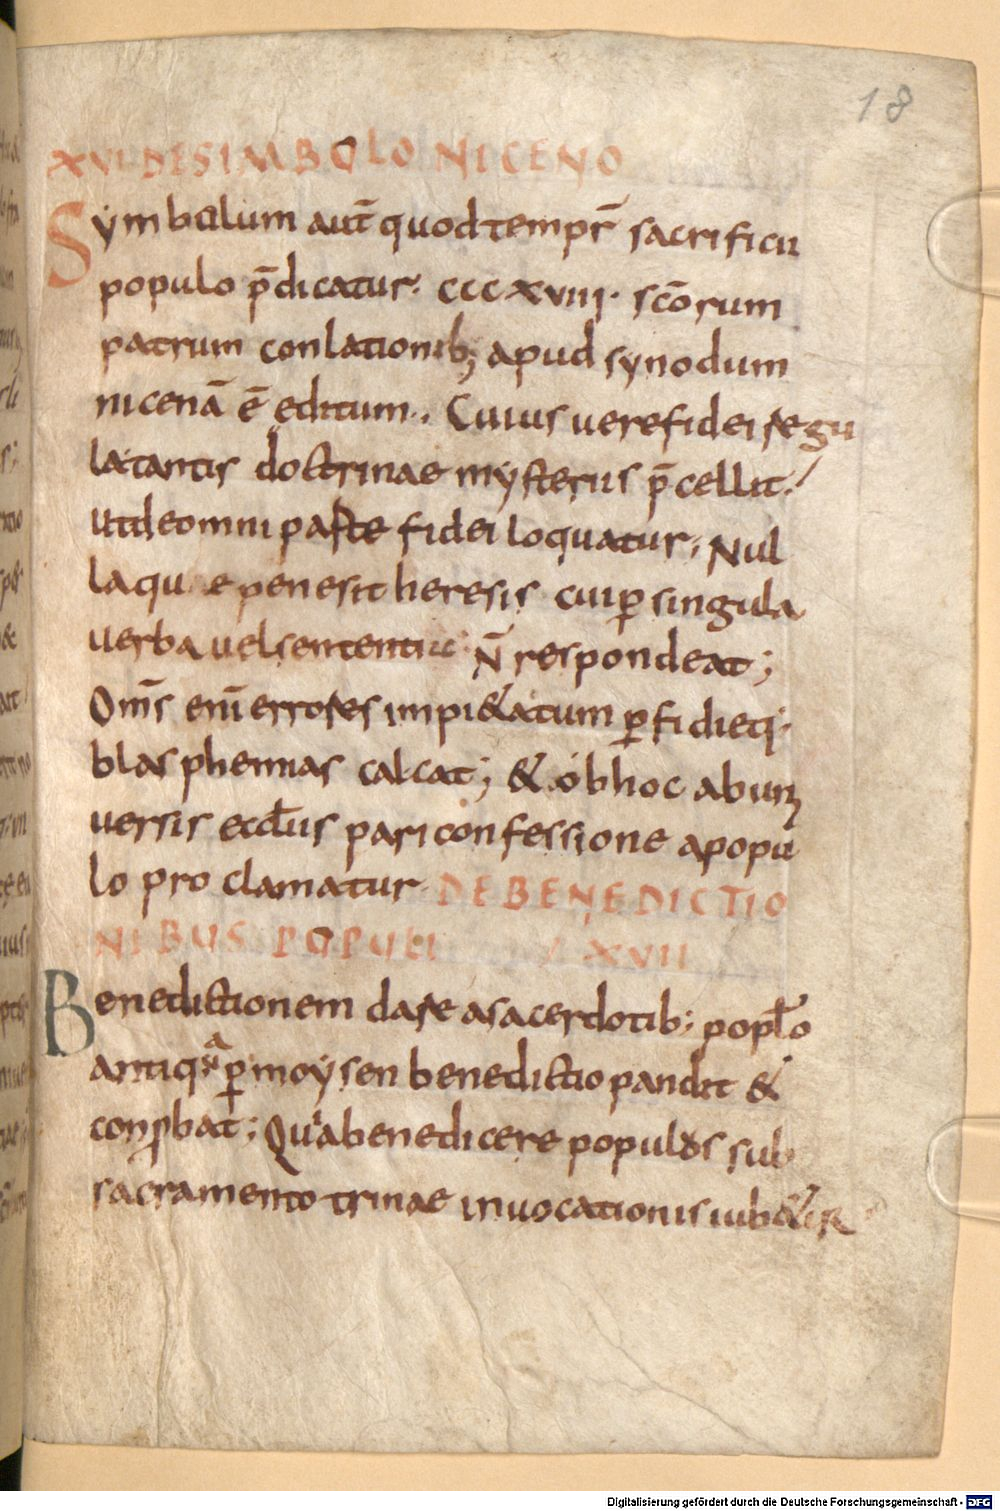 18
XVI DESIMBOLO NICENO
Symbolum aut̄ quod tempr̄ sacrificii
populo p̄dicatur. CCCXVIII. sc̄orum
patrum conlationib; apud synodum
nicenā ē editum., Cuius uerefidei regu
latantis doctrinae mysteriis p̄cellit./
utdeomni parte fidei loquatur; Nul
laque penesit heresis cuiꝑ singula
uerba uelsententias N̄ respondeat;
Om̄s enī errores impi&atum ꝑfidieq;
blasphemias calcat; & obhoc abuni
uersis eccl̄iis pari confessione apopu
lo proclamatur. DEBENEDICTIO
NIBUS POPULI XVII
Benedictionem dare asacerdotib; popl̄o
antiqa ꝑ moysen benedictio pandit &
conꝓbat; Quia benedicere populos sub
sacramento trinae inuocationis iub&ur
Digitalisierung gefördert durch die Deutsche Forschungsgemeinschaft - DFG